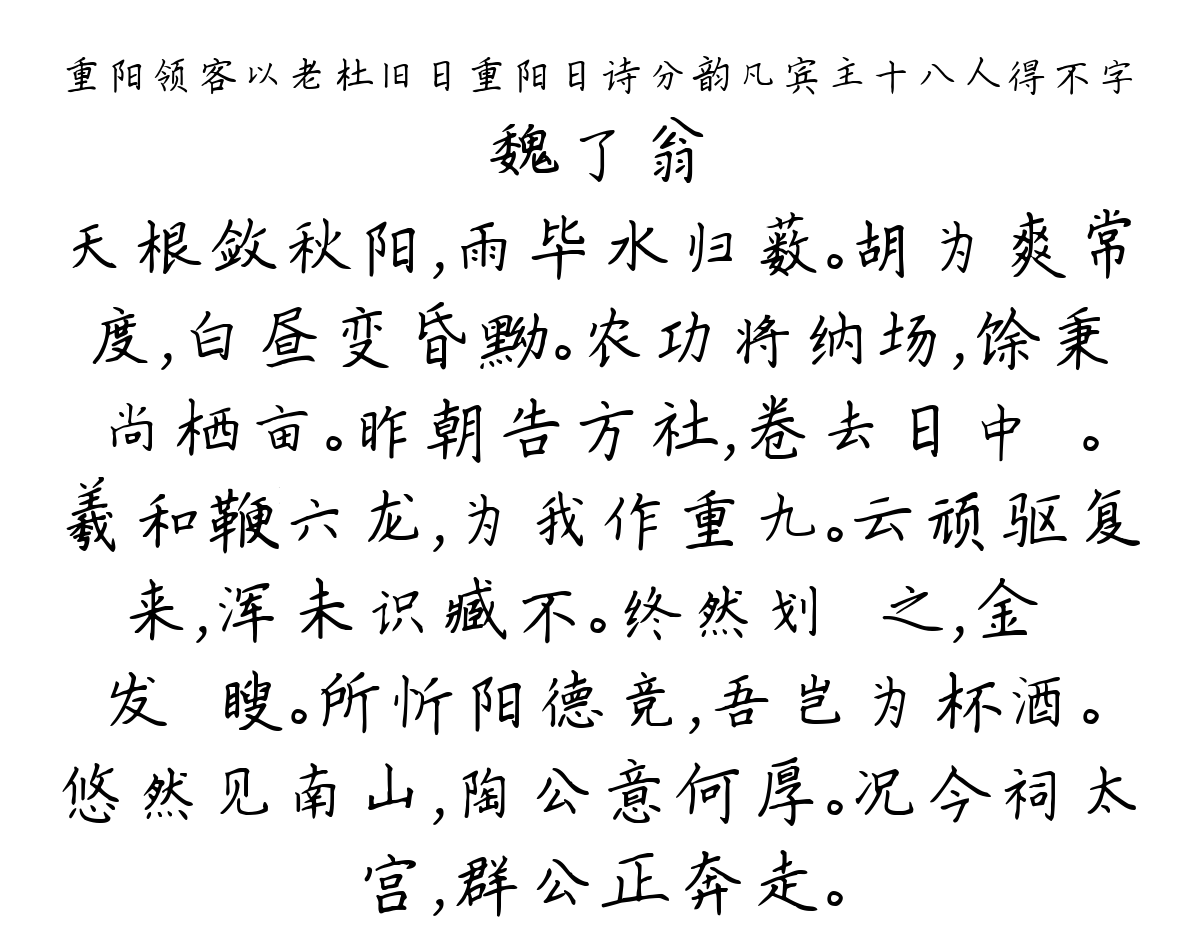 重阳领客以老杜旧日重阳日诗分韵凡宾主十八人得不字
魏了翁
天根敛秋阳,雨毕水归薮。胡为爽常
度,白昼变昏黝。农功将纳场,馀秉
尚栖亩。昨朝告方社,卷去日中 。
羲和鞭六龙,为我作重九。云顽驱复
来,浑未识臧不。终然划 之,金
发 瞍。所忻阳德竞,吾岂为杯酒。
悠然见南山,陶公意何厚。况今祠太
宫,群公正奔走。